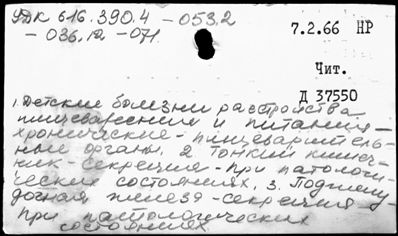 УДК 616.390.4 - 053.2
- 036.12 - 071
7.2.66 НР
Чит.
Д 37550
1. Детские болезни расстройства
пищеварения и питания -
хронические - пищеваритель-
ные органы. 2 Тонкий кишеч-
ник - секреция - при патологи-
ческих состояниях. 3. Поджелу-
дочная железа - секреция -
при патологических
состояниях